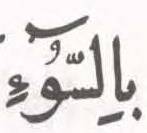 بِالسُّوٓءِ